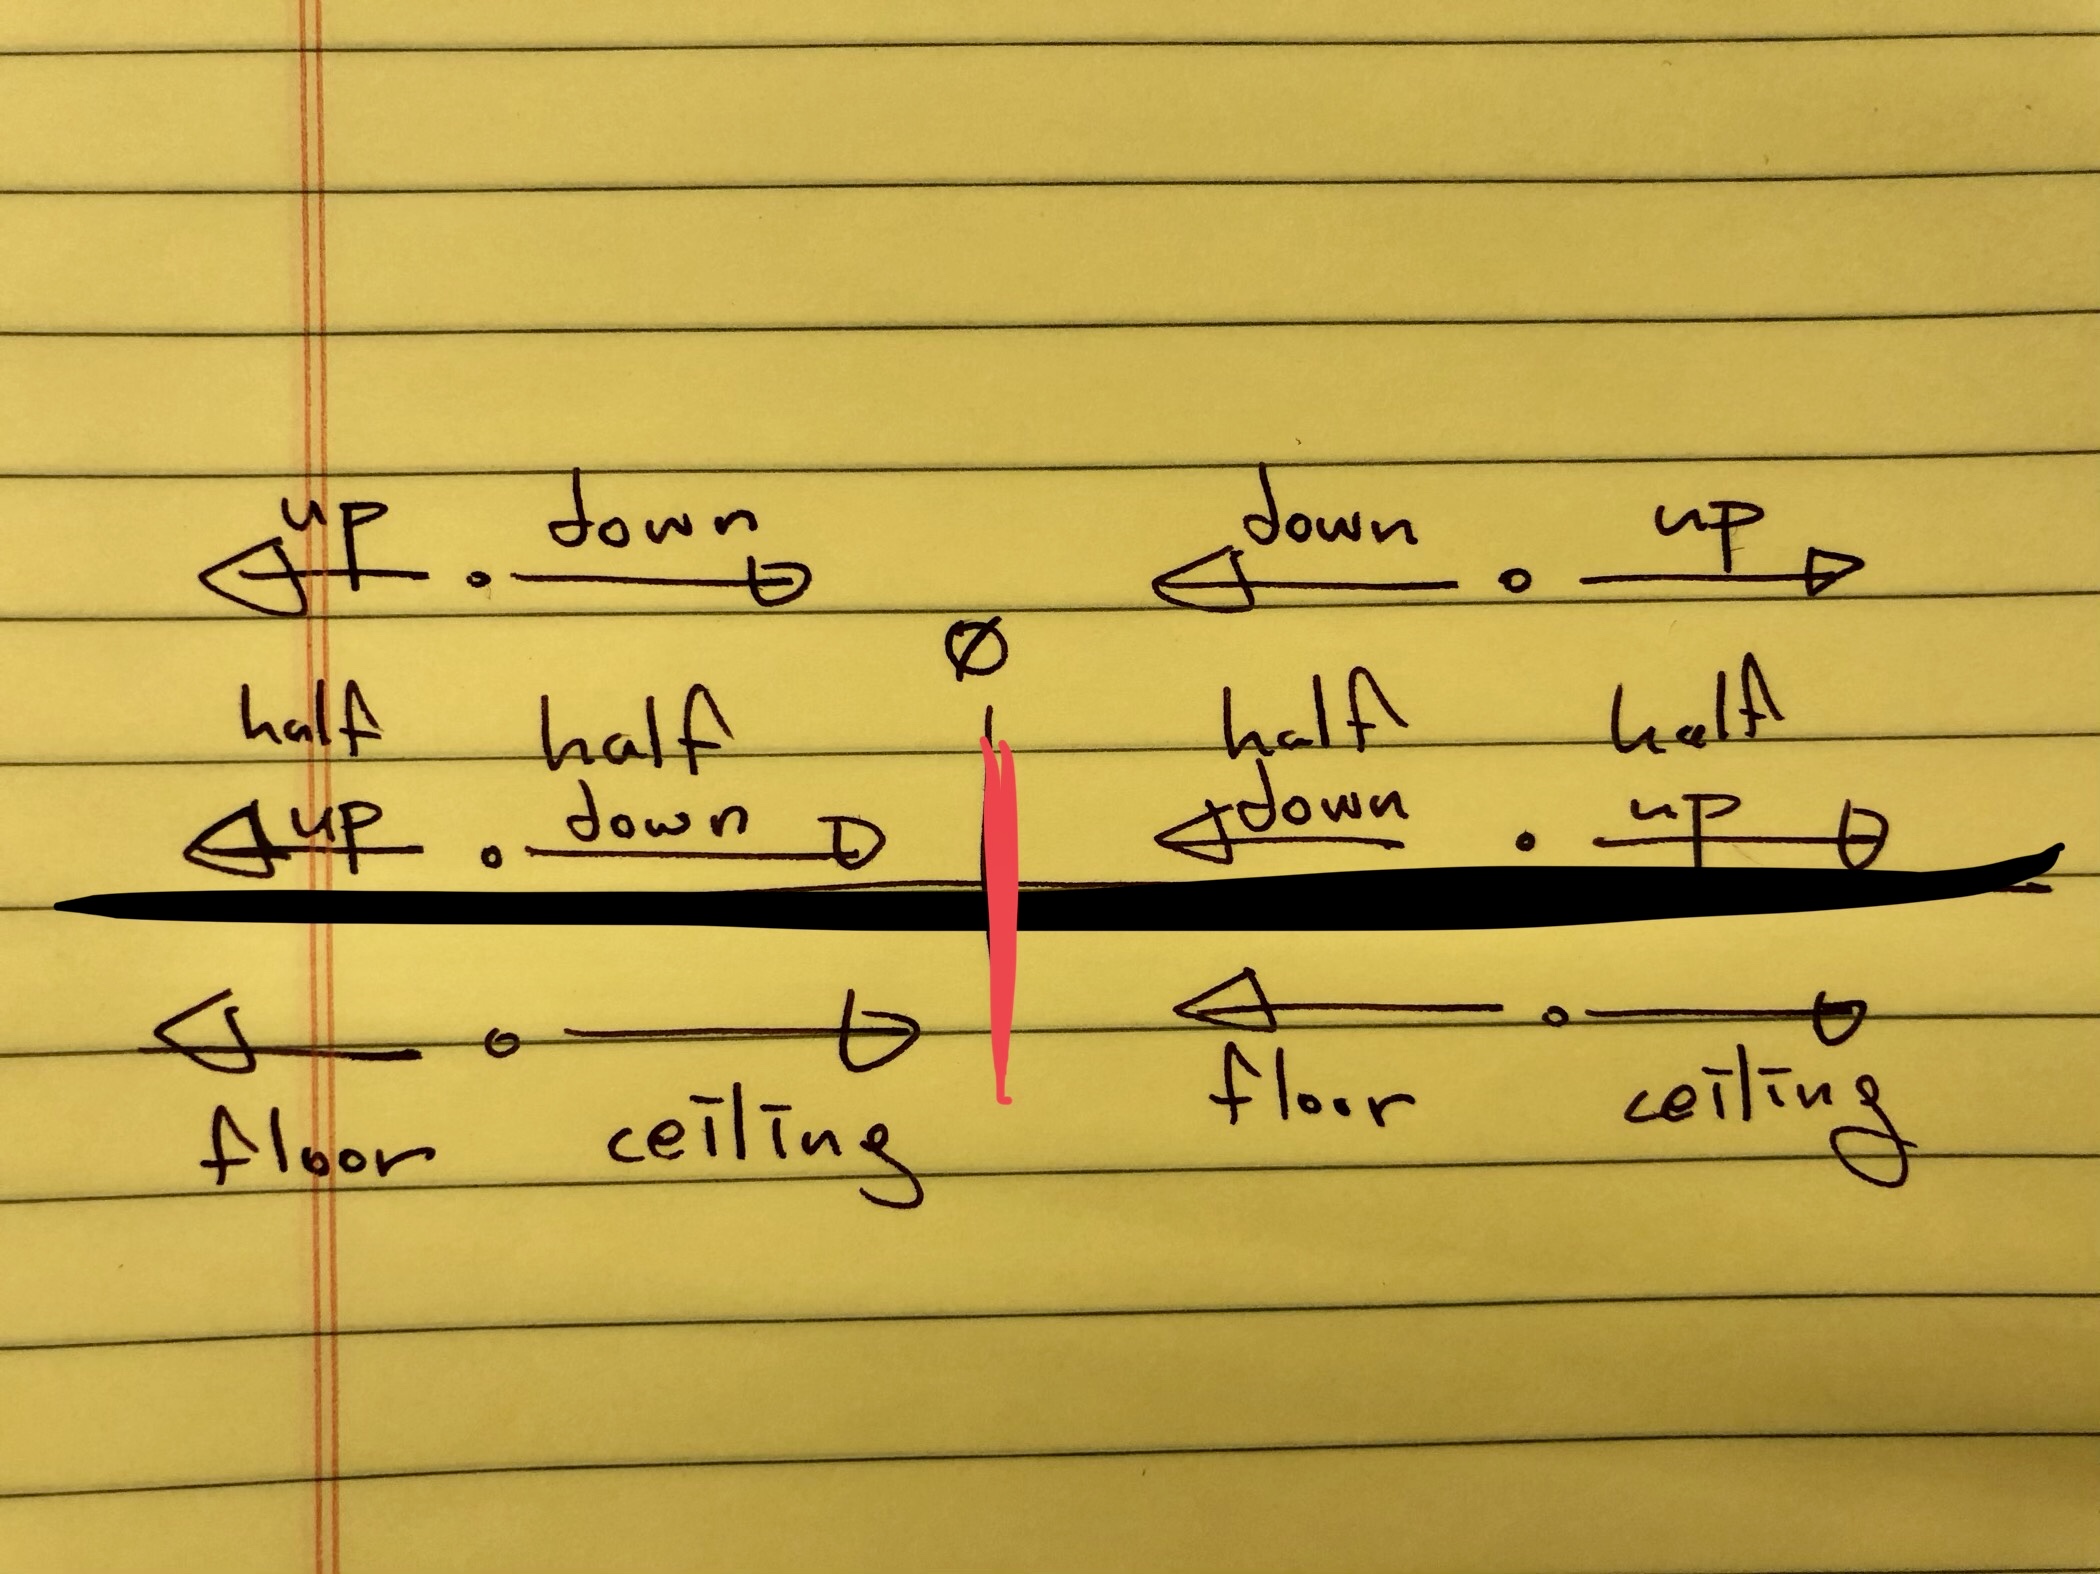 up down down up
Ø
half half half half
up down down up
floor ceiling floor ceiling